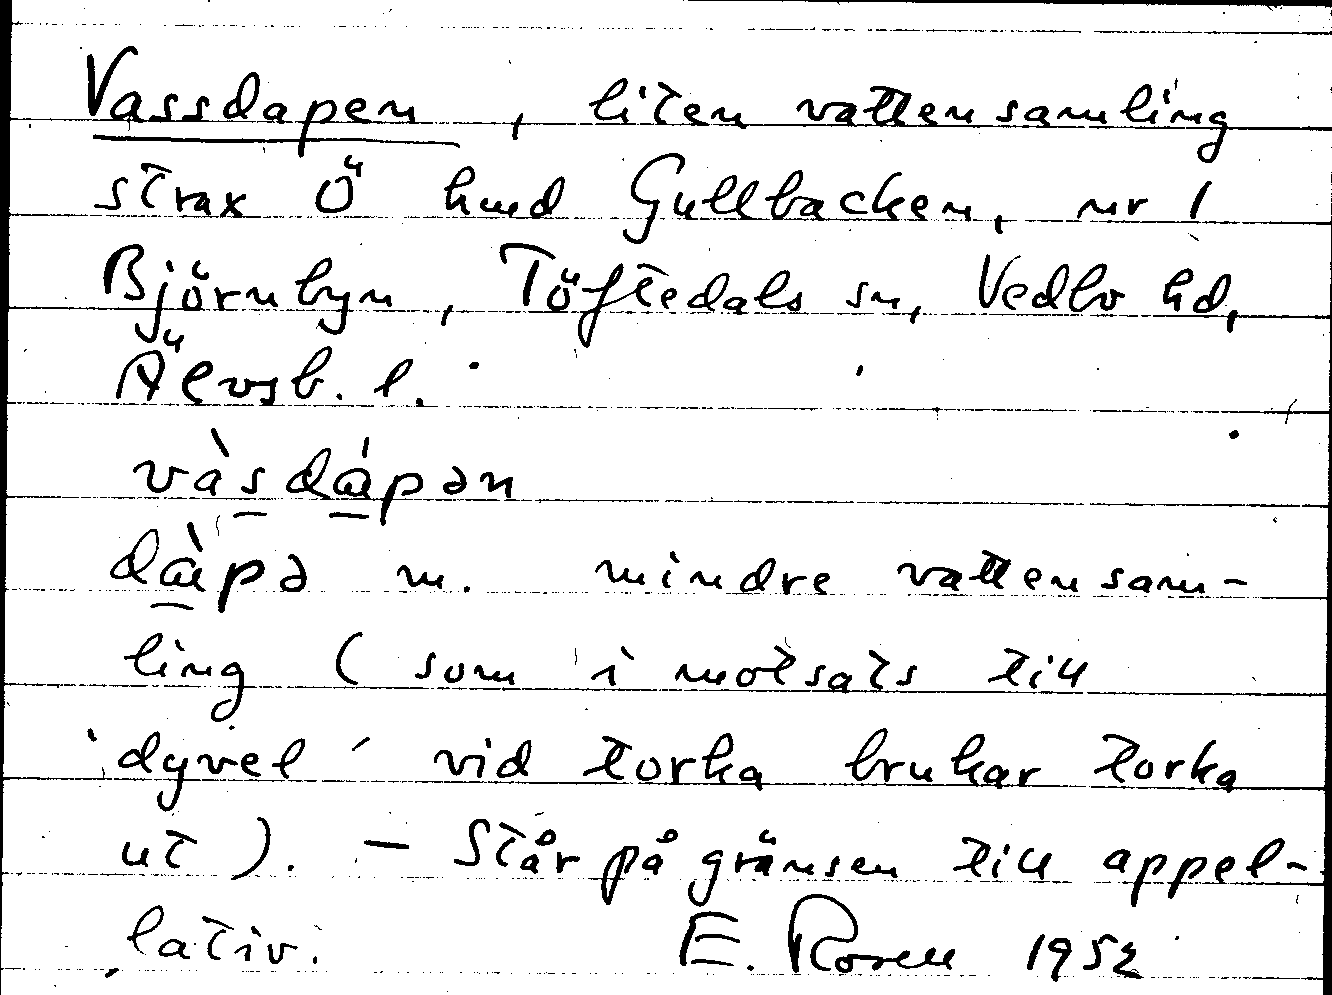 Vassdapen, liten vattensamling
strax Ö hmd Gullbacken, nr 1
Björnbyn, Töftedals sn, Vedbo hd,
Älvsb. l.
vàsdápən
dàpə m. mindre vattensam-
ling (som i motsats till
'dyvel' vid torka brukar torka
ut). - Står på gränsen till appel-
lativ. E. Rosell 1952